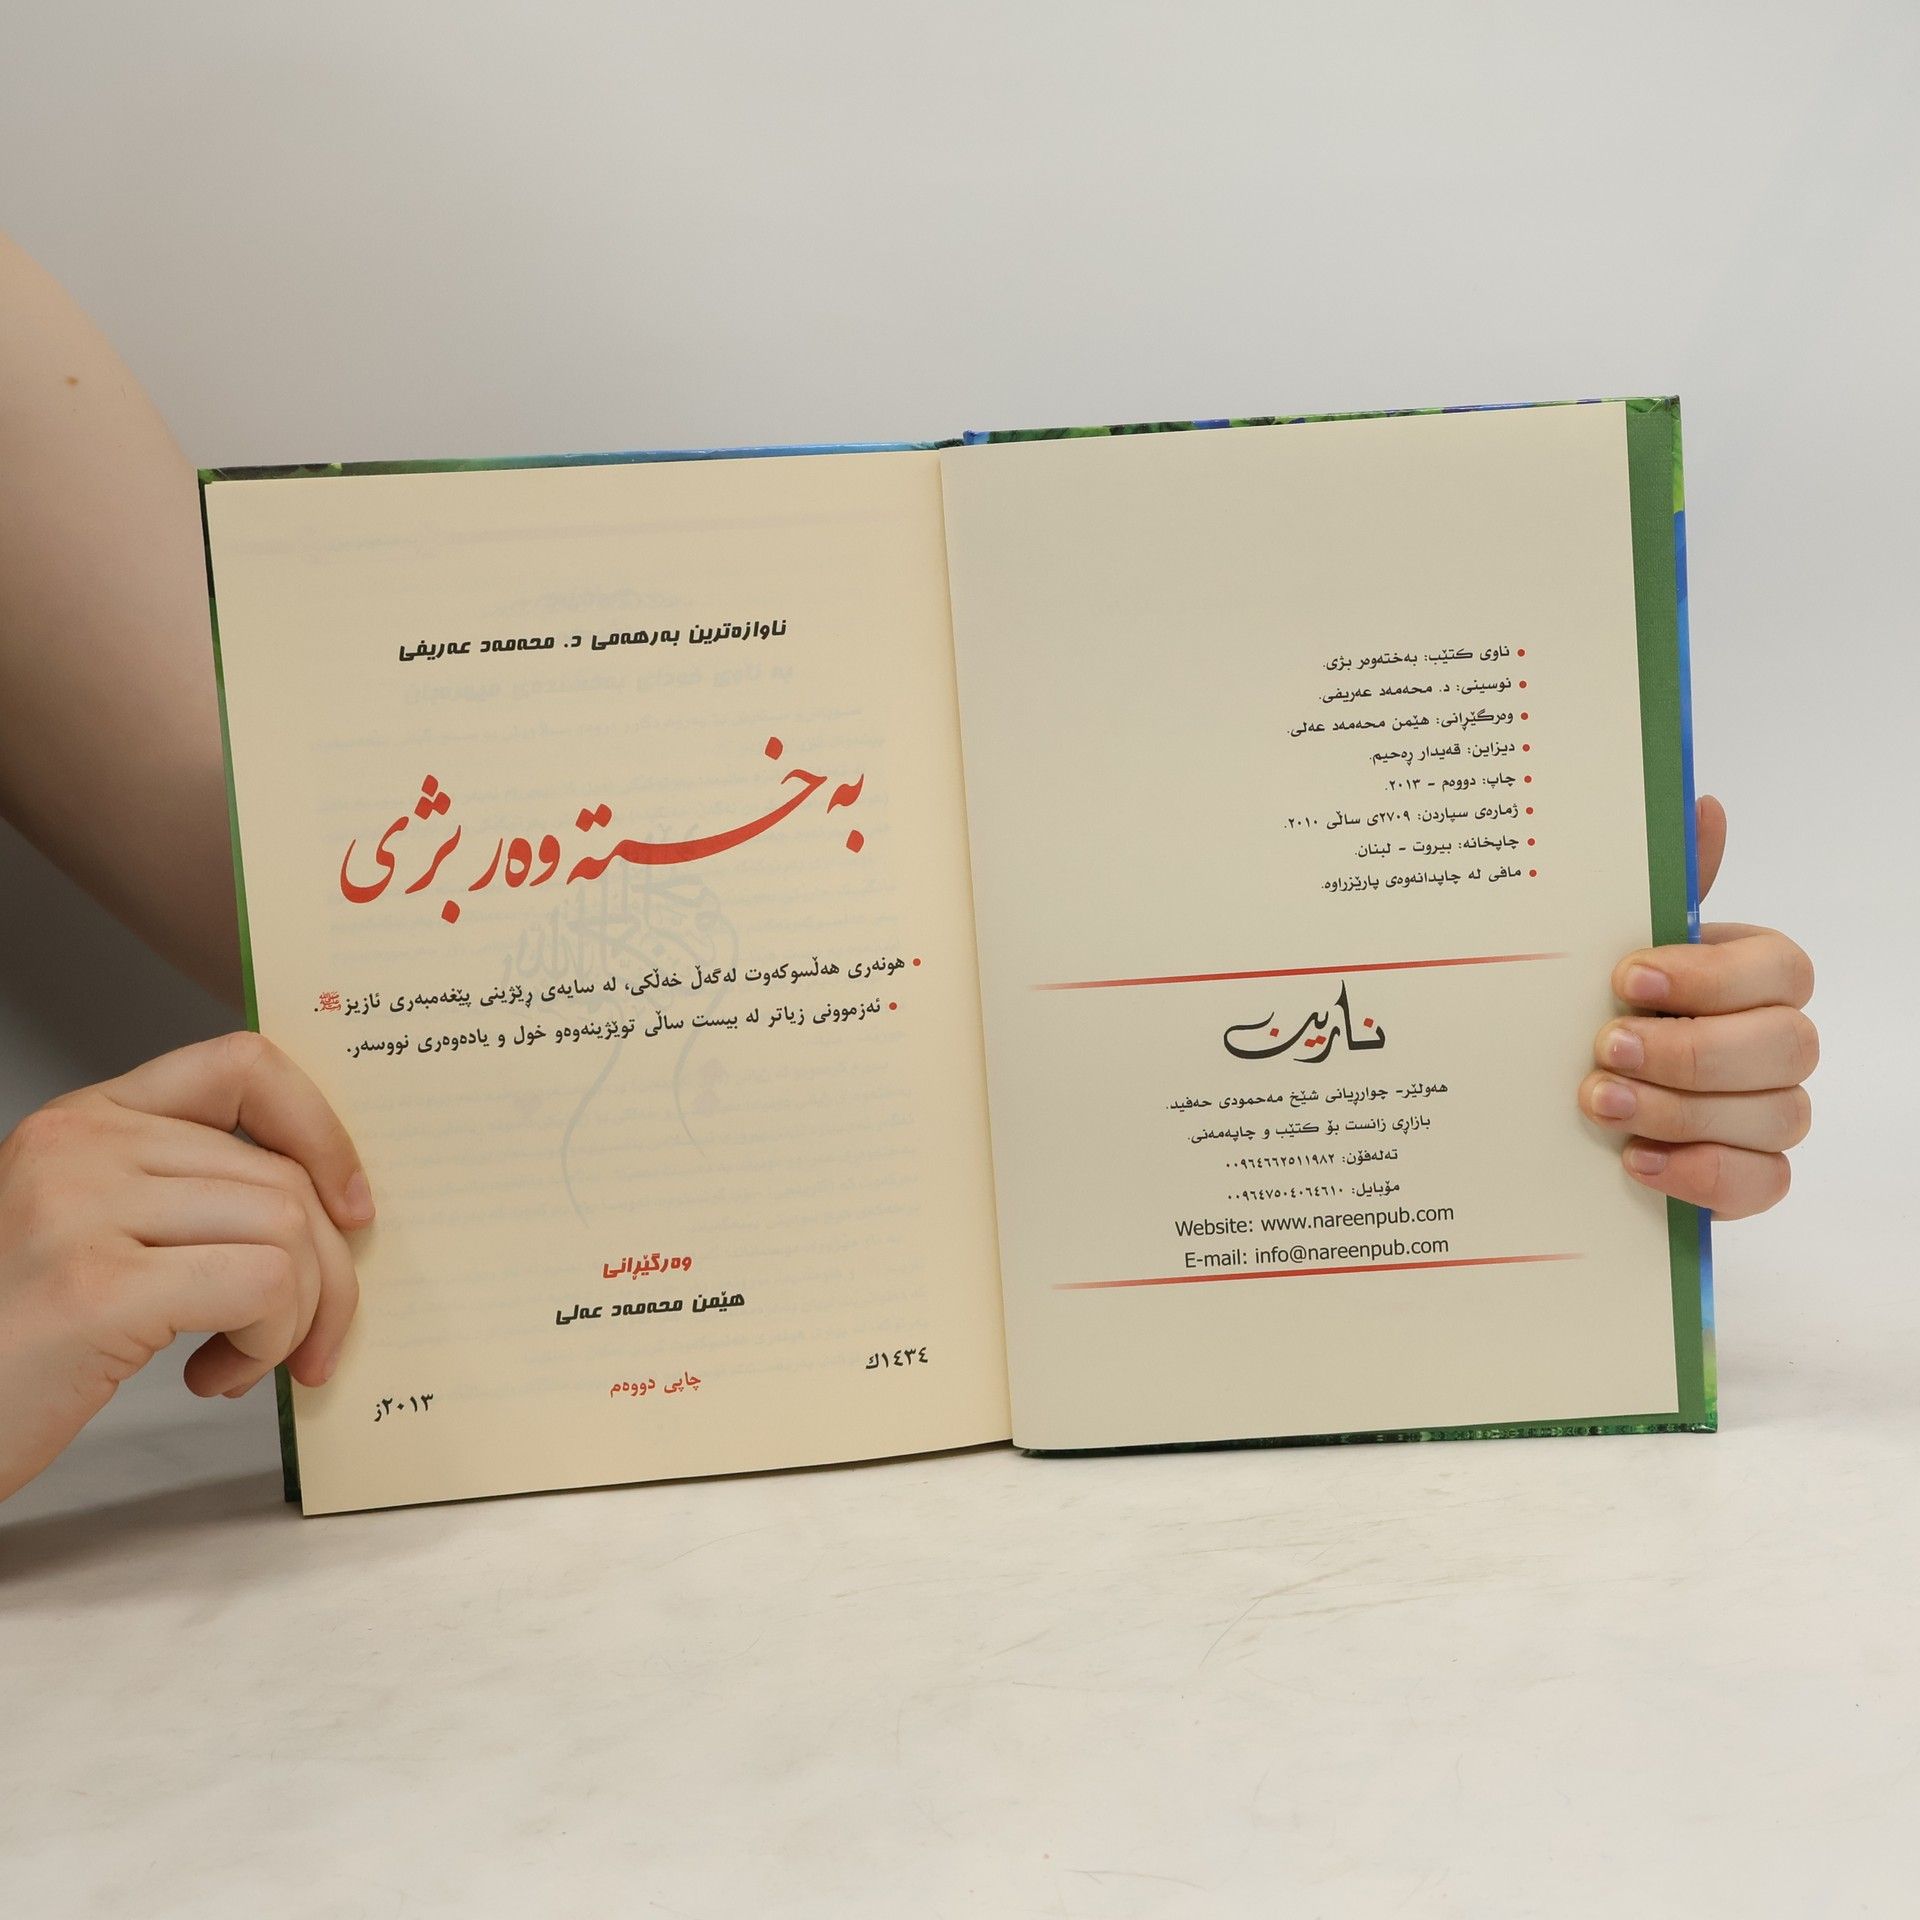 ناوی کتێب: بەختەوەر بژی.
نوسینی: د. محەمەد عەریفی.
وەرگێڕانی: هێمن محەمەد عەلی.
دیزاین: قەیدار ڕەحیم.
چاپ: دووەم - ٢٠١٣.
ژمارەی سپاردن: ٢٧٠٩ی ساڵی ٢٠١٠.
چاپخانە: بیروت - لبنان.
مافی لە چاپدانەوەی پارێزراوە.
نارین
هەولێر- چواررپانی شێخ مەحمودی حەفید.
بازاڕی زانست بۆ کتێب و چاپەمەنی.
تەلەفۆن: ٠٠٩٦٤٦٦٢٥١١٩٨٢
مۆبایل: ٠٠٩٦٤٧٥٠٤٠٦٤٦١٠
Website: www.nareenpub.com
E-mail: info@nareenpub.com
ناوازەترین بەرهەمی د. محەمەد عەریفی
بەختەوەر بژی
هونەری هەڵسوکەوت لەگەڵ خەڵکی، لە سایەی ڕێژینی پێغەمبەری ئازیز ﷺ.
ئەزموونی زیاتر لە بیست ساڵی توێژینەوەو خول و یادەوەری نووسەر.
وەرگێڕانی
هێمن محەمەد عەلی
١٤٣٤ك
چاپی دووەم
٢٠١٣ز